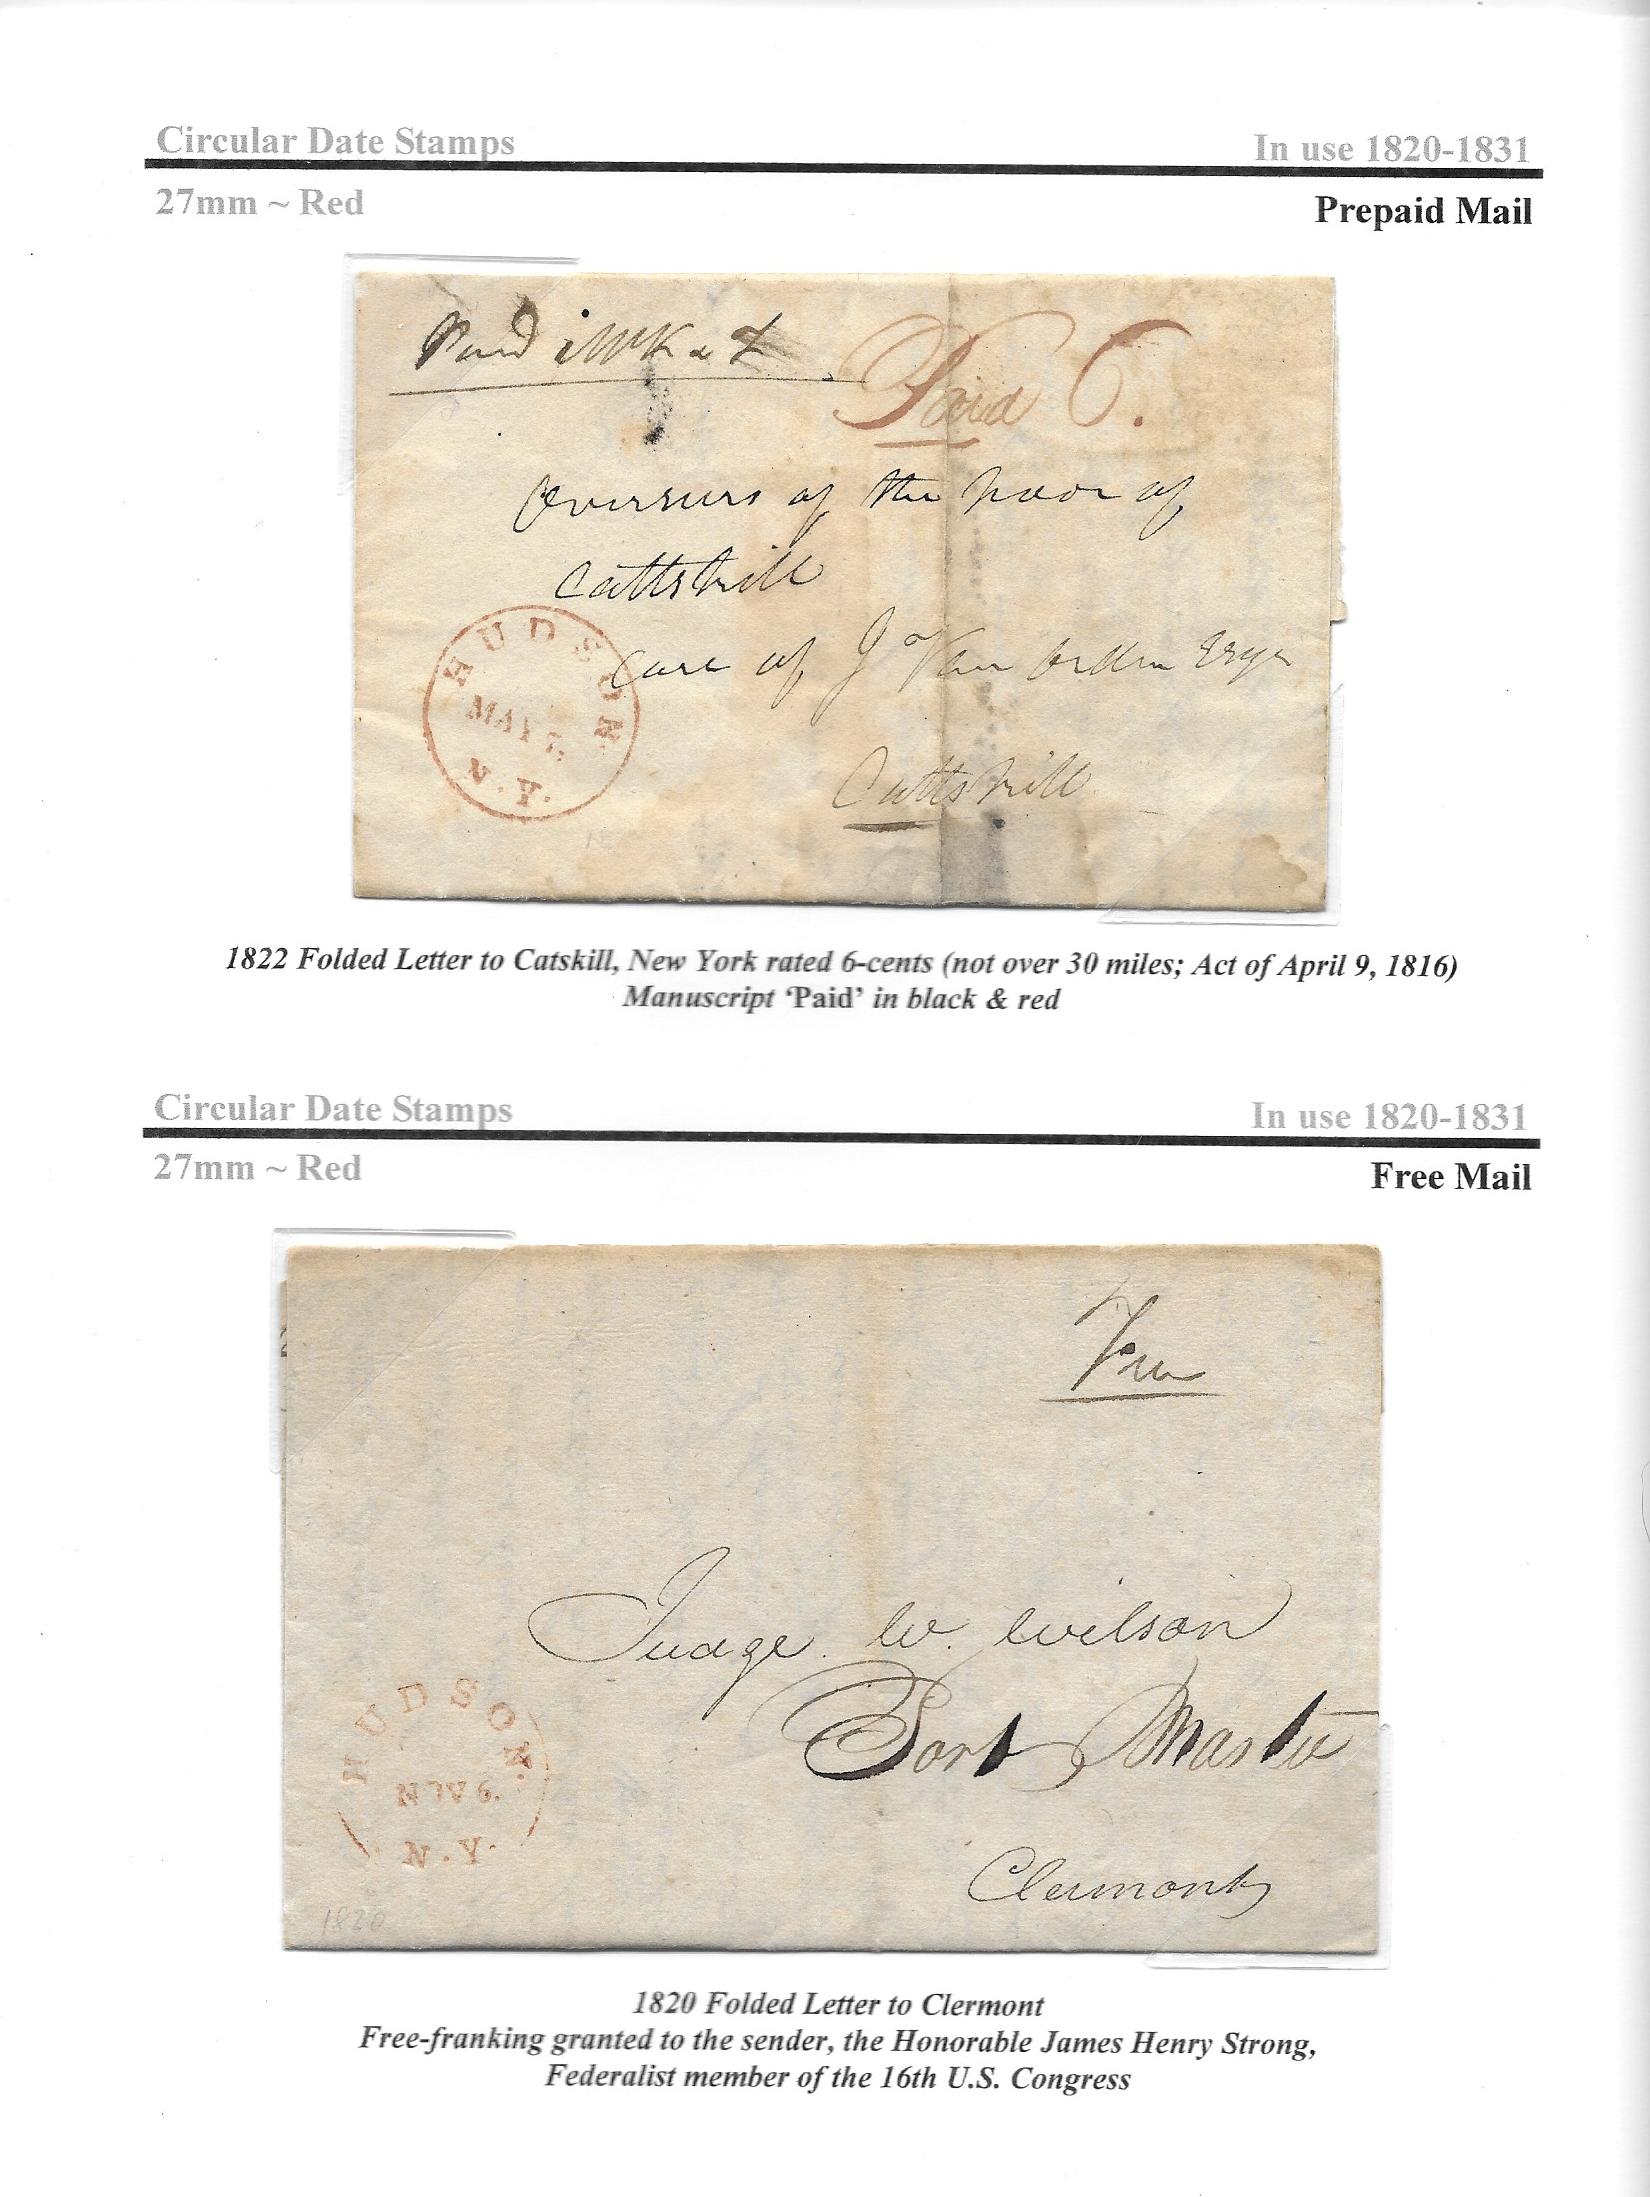 Circular Date Stamps
In use 1820-1831
27mm ~ Red
Prepaid Mail
Paid
Paid 6.
Overseers of the Poor of
Cattskill
Care of J Van Orden Esqr
Cattskill
HUDSON N.Y.
MAY
1822 Folded Letter to Catskill, New York rated 6-cents (not over 30 miles; Act of April 9, 1816)
Manuscript ‘Paid’ in black & red
Circular Date Stamps
In use 1820-1831
27mm ~ Red
Free Mail
Free
Judge W. Wilson
Post Master
Clermont
HUDSON. N.Y.
NOV 6.
1820
1820 Folded Letter to Clermont
Free-franking granted to the sender, the Honorable James Henry Strong,
Federalist member of the 16th U.S. Congress